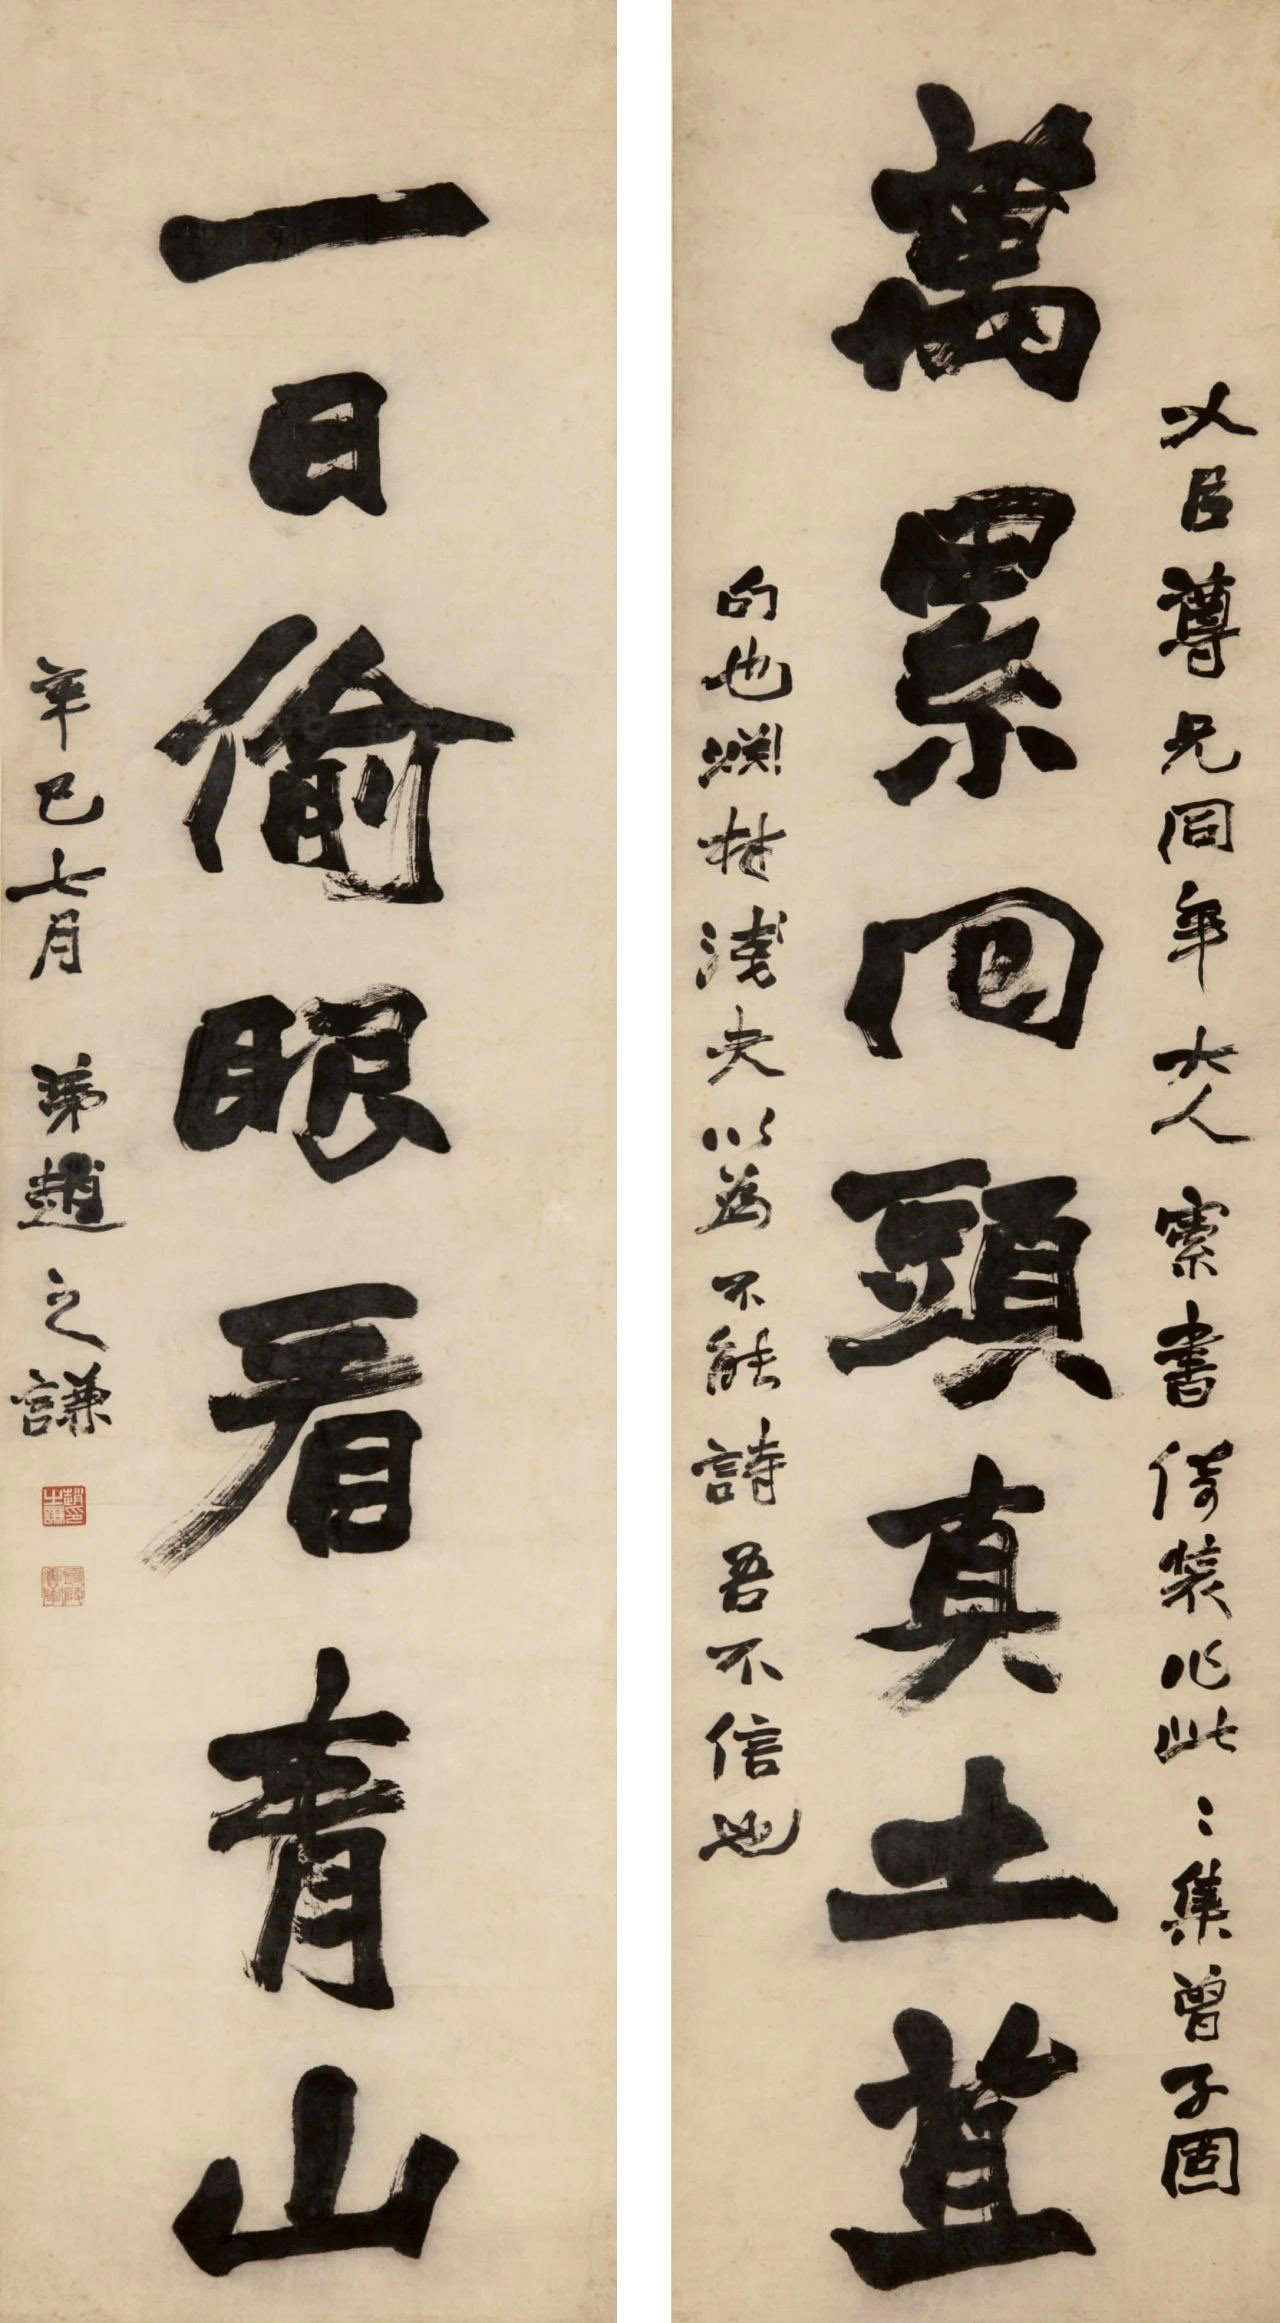 以臣尊兄同年大人索書倚裝作此〻集曾子固
萬累回頭真土苴
句也爛村淺夫以為不能詩吾不信也
一日偷眼看青山
辛巳七月 弟趙之謙